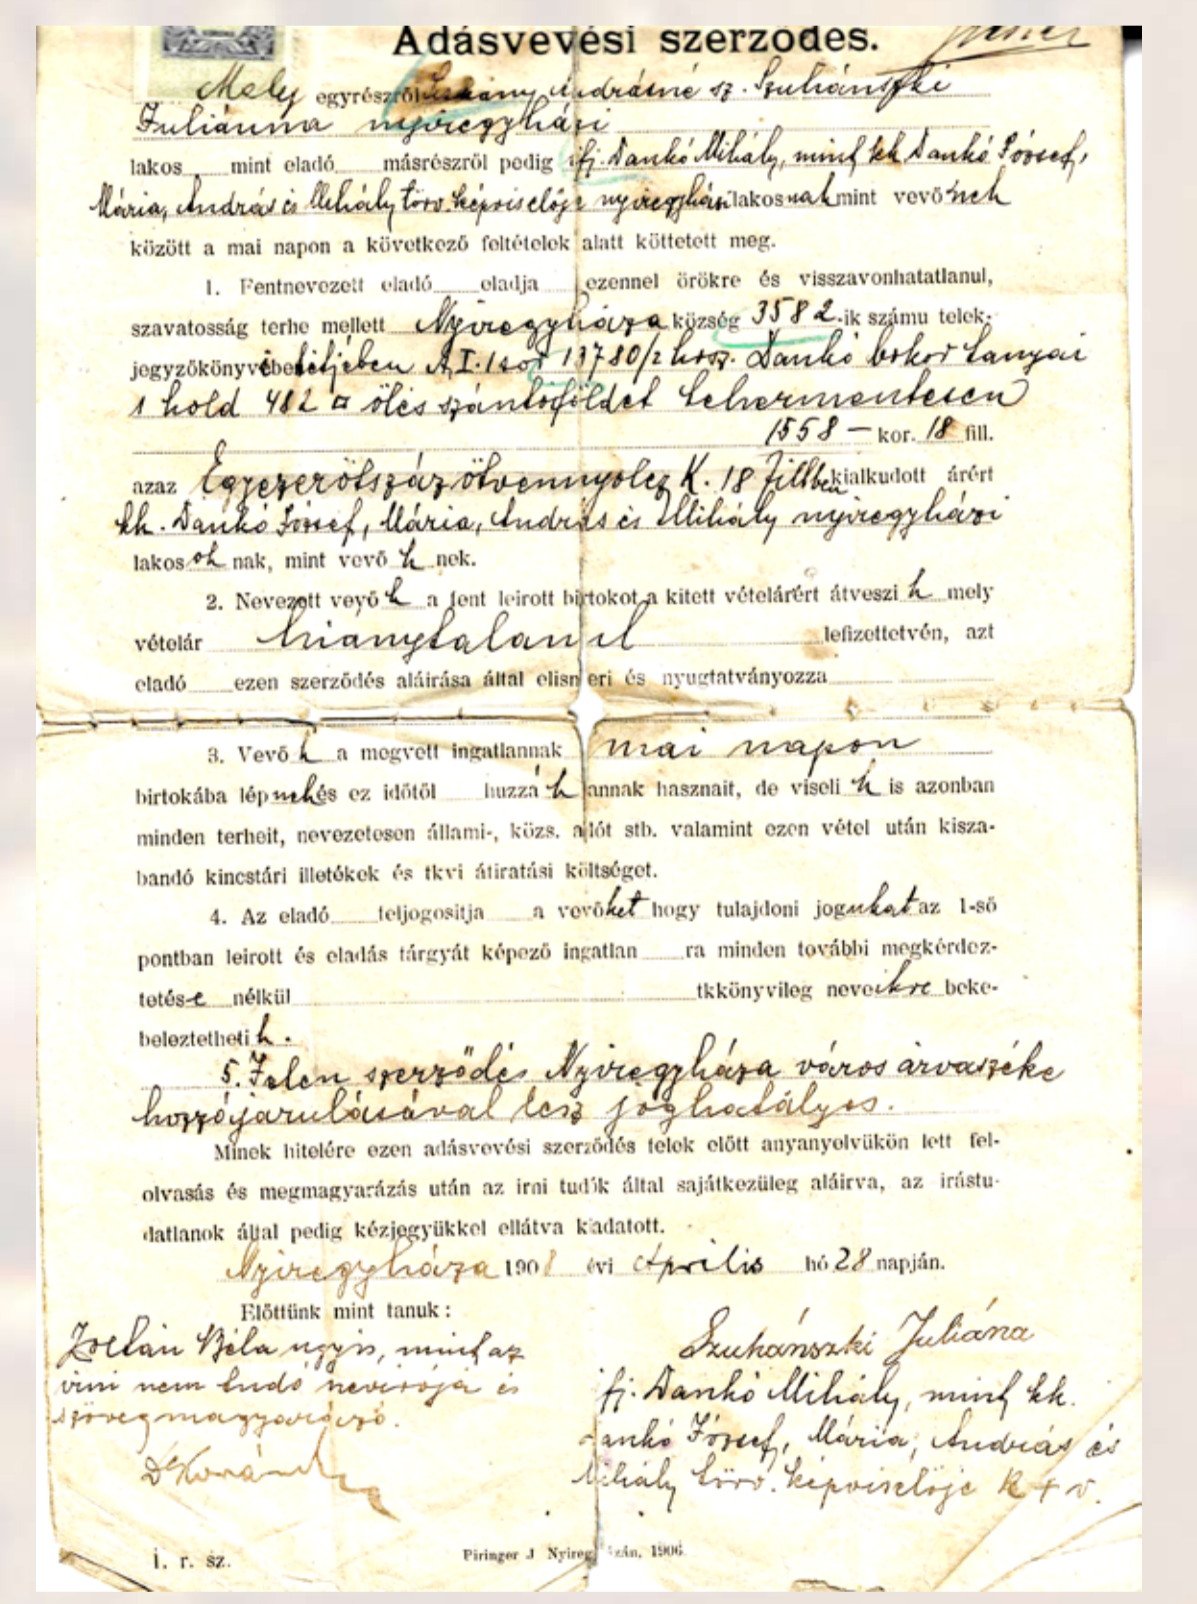 Adásvevési szerződés.
Mely egyrészről Andrásné sz. Szuhánszki
Juliánna nyiregyházi
lakos mint eladó másrészről pedig ifj. Dankó Mihály, mint kk Dankó József,
Mária, András és Mihály törv. képviselője nyiregyházi lakosnak mint vevőnek
között a mai napon a következő feltételek alatt köttetett meg.
1. Fentnevezett eladó eladja ezennel örökre és visszavonhatatlanul,
szavatosság terhe mellett Nyiregyháza község 3582-ik számu telek-
jegyzőkönyvi betétjében A I. 1 sor 13780/2 hrsz. Dankó bokor tanyai
1 hold 482 □ öles szántóföldet tehermentesen
1558 — kor. 18 fill.
azaz Egyezerötszázötvennyolcz K. 18 fillben kialkudott árért
kk. Dankó József, Mária, András és Mihály nyiregyházi
lakosoknak, mint vevőknek.
2. Nevezett vevők a fent leirott birtokot a kitett vételárért átveszik mely
vételár hiánytalanul lefizettetvén, azt
eladó ezen szerződés aláirása által elismeri és nyugtatványozza
3. Vevők a megvett ingatlannak mai napon
birtokába lépnek és ez időtől huzzák annak hasznait, de viselik is azonban
minden terheit, nevezetesen állami-, közs. adót stb. valamint ezen vétel után kisza-
bandó kincstári illetékek és tkvi átiratási költséget.
4. Az eladó feljogositja a vevőket hogy tulajdoni jogukat az 1-ső
pontban leirott és eladás tárgyát képező ingatlan ra minden további megkérdez-
tetése nélkül tkkönyvileg neveikre beke-
beleztethetik.
5. Jelen szerződés Nyiregyháza város árvaszéke
hozzájárulásával lesz joghatályos.
Minek hitelére ezen adásvevési szerződés felek előtt anyanyelvükön lett fel-
olvasás és megmagyarázás után az irni tudók által sajátkezüleg aláirva, az irástu-
datlanok által pedig kézjegyükkel ellátva kiadatott.
Nyiregyháza 1908 évi április hó 28 napján.
Előttünk mint tanuk:
Zoltán Béla ugyis, mint az
irni nem tudó nevirója és
szövegmagyarázó.
Szuhánszki Juliána
ifj. Dankó Mihály, mint kk.
Dankó József, Mária, András és
Mihály törv. képviselője k + v.
I. r. sz.
Piringer J Nyiregyházán, 1906